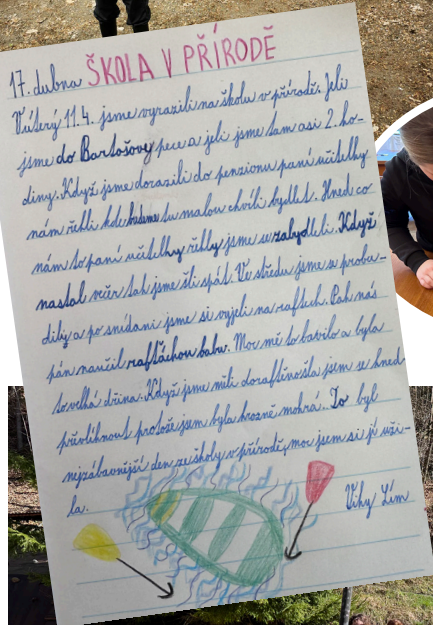 17. dubna ŠKOLA V PŘÍRODĚ
V úterý 11.4. jsme vyrazili na školu v přírodě. Jeli
jsme do Bartošovy pece a jeli jsme tam asi 2. ho-
diny. Když jsme dorazili do penzionu paní učitelky
nám řekli kde budeme tu malou chvíli bydlet. Hned co
nám to paní učitelky řekly jsme se zabydleli. Když
nastal večer tak jsme šli spát. Ve středu jsme se proba-
dily a po snídani jsme si vyjeli na raftech. Pak nás
pán naučil raftáckou babu. Moc mě to bavilo a byla
to velká dřina. Když jsme měli doraftíno šla jsem se hned
převlíknout protože jsem byla hrozně mokrá. To byl
nejzábavnější den ze školy v přírodě, moc jsem si ji uži-
la.
Viky Lím